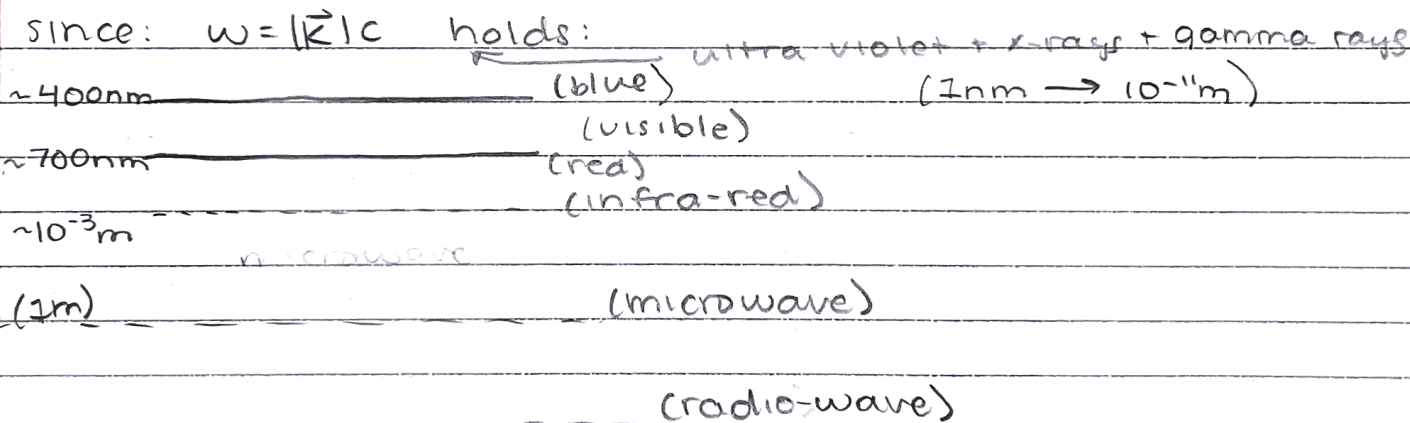 since: w = |k⃗| c holds:
ultra violet + x-rays + gamma rays
~400nm (blue) (1nm → 10⁻¹¹m)
(visible)
~700nm (red)
(infra-red)
~10⁻³m
microwave
(1m) (microwave)
(radio-wave)